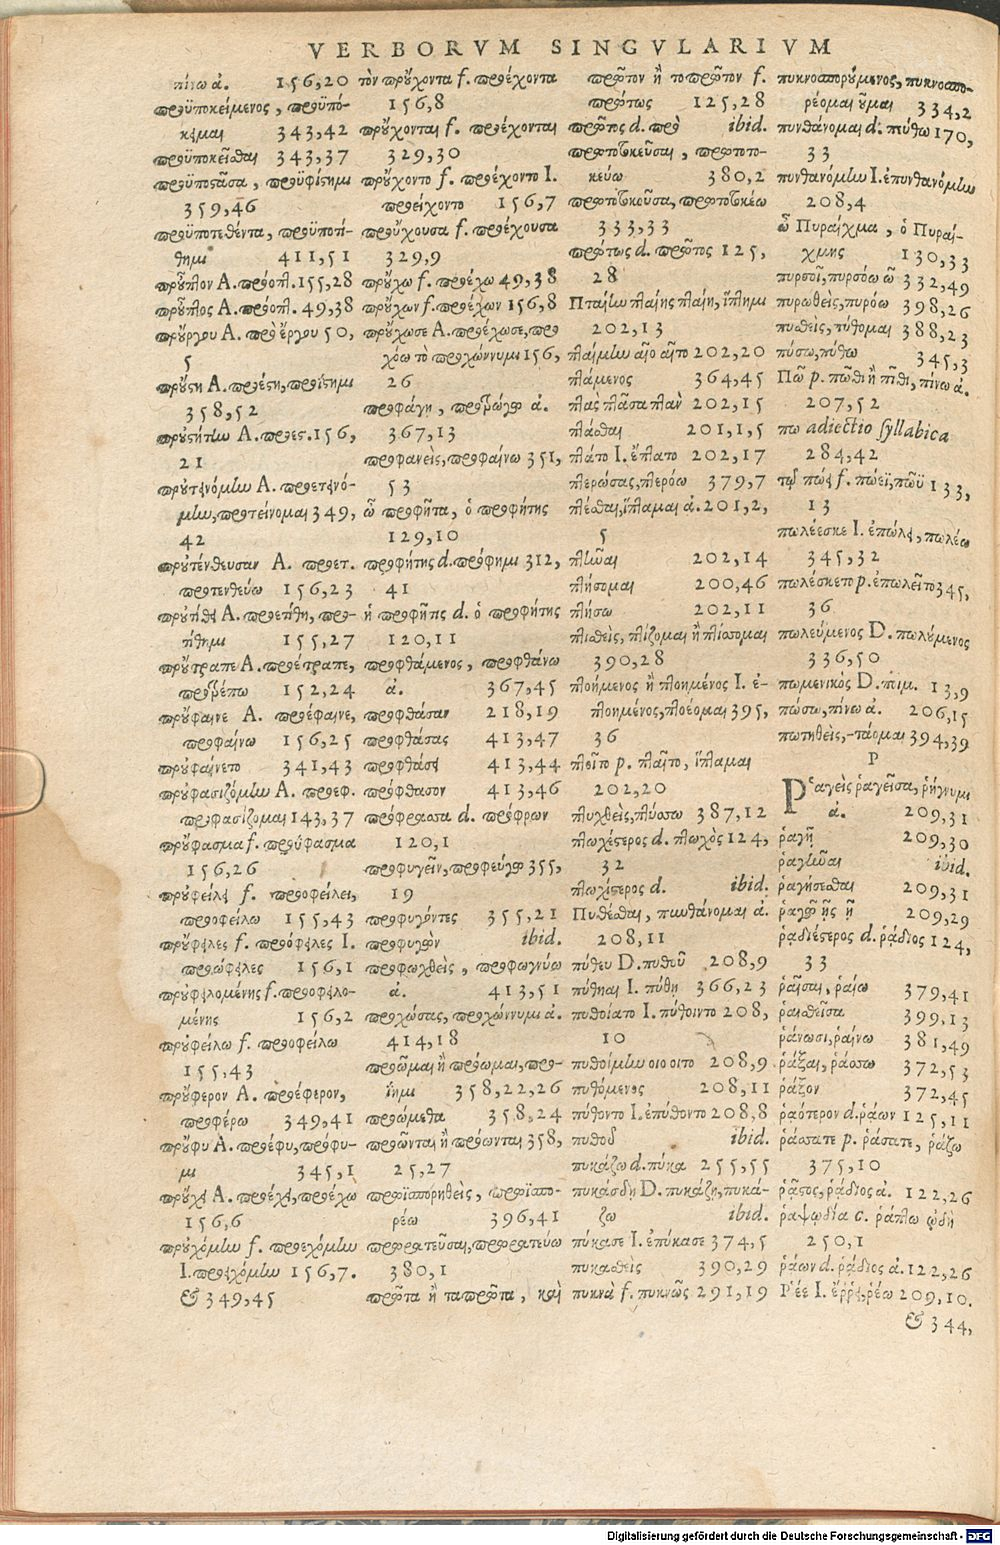 VERBORVM SINGVLARIVM
πίνω ἀ. 156,20
προϋποκείμενος, προϋπό-
κειμαι 343,42
προϋποκεῖσθαι 343,37
προϋποστᾶσα, προϋφίστημι
359,46
προϋποτεθέντα, προϋποτί-
θημι 411,51
προὖπλον A. προοπλ. 155,28
προὖπλος A. προοπλ. 49,38
προὔργου A. πρὸ ἔργου 50,
5
προὔστη A. προέστη, προΐστημι
358,52
προὐστήτην A. προεστ. 156,
21
προὐτεινόμην A. προετεινό-
μην, προτείνομαι 349,
42
προὐτένθευσαν A. προετ.
προτενθεύω 156,23
προὐτίθει A. προετίθη, προ-
τίθημι 155,27
προὔτραπε A. προέτραπε,
προτρέπω 152,24
προὔφαινε A. προέφαινε,
προφαίνω 156,25
προὐφαίνετο 341,43
προὐφασιζόμην A. προεφ.
προφασίζομαι 143,37
προὔφασμα f. προΰφασμα
156,26
προὐφείλει f. προοφείλει,
προοφείλω 155,43
προὔφειλες f. προόφειλες I.
προώφειλες 156,1
προὐφειλομένης f. προοφειλο-
μένης 156,2
προὐφείλω f. προοφείλω
155,43
προὔφερον A. προέφερον,
προφέρω 349,41
προὔφυ A. προέφυ, προφυ-
μι 345,1
προὔχει A. προέχει, προέχω
156,6
προὐχόμην f. προεχόμην
I. προειχόμην 156,7.
& 349,45
τὸν προὔχοντα f. προέχοντα
156,8
προὔχονται f. προέχονται
329,30
προὔχοντο f. προέχοντο I.
προείχοντο 156,7
προὔχουσα f. προέχουσα
329,9
προὔχω f. προέχω 49,38
προὔχων f. προέχων 156,8
προὔχωσε A. προέχωσε, προ
χόω τὸ προχώννυμι 156,
26
προφάγῃ, προτρώγω ἀ.
367,13
προφανεὶς, προφαίνω 351,
53
ὦ προφῆτα, ὁ προφήτης
129,10
προφήτης d. πρόφημι 312,
41
ἡ προφῆτις d. ὁ προφήτης
120,11
προφθάμενος, προφθάνω
ἀ. 367,45
προφθάσαν 218,19
προφθάσας 413,47
προφθάσει 413,44
πρόφθασον 413,46
πρόφρασσα d. πρόφρων
120,1
προφυγεῖν, προφεύγω 355,
19
προφυγόντες 355,21
προφυγὼν ibid.
προφωχθεὶς, προφωγνύω
ἀ. 413,51
προχώσας, προχώννυμι ἀ.
414,18
προῶμαι ἢ πρόωμαι, προ-
ΐημι 358,22,26
προώμεθα 358,24
προῶνται ἢ πρόωνται 358,
25,27
πρωϊσπορηθεὶς, πρωϊσπο-
ρέω 396,41
πρωρατεῦσαι, πρωρατεύω
380,1
πρῶτα ἢ τὰ πρῶτα, καὶ
πρῶτον ἢ τὸ πρῶτον f.
πρώτως 125,28
πρῶτος d. πρὸ ibid.
πρωτοτοκεῦσαι, πρωτοτο-
κεύω 380,2
πρωτοτοκοῦσα, πρωτοτοκέω
333,33
πρώτως d. πρῶτος 125,
28
Πταίην πταίης πταίη, ἵπτημι
202,13
πταίμην αῖο αῖτο 202,20
πτάμενος 364,45
πτὰς πτᾶσα πτὰν 202,15
πτάσθαι 201,1,5
πτάτο I. ἔπτατο 202,17
πτερώσας, πτερόω 379,7
πτέσθαι, ἵπταμαι ἀ. 201,2,
5
πτῆναι 202,14
πτήσομαι 200,46
πτήσω 202,11
πτισθεὶς, πτίζομαι ἢ πτίσσομαι
390,28
πτοήμενος ἢ πτοημένος I. ἐ-
πτοημένος, πτοέομαι 395,
36
πτοῖτο p. πταῖτο, ἵπταμαι
202,20
πτυχθεὶς, πτύσσω 387,12
πτωχέστερος d. πτωχὸς 124,
32
πτωχίστερος d. ibid.
Πυθέσθαι, πυνθάνομαι ἀ.
208,11
πύθευ D. πυθοῦ 208,9
πύθηαι I. πύθῃ 366,23
πυθοίατο I. πύθοιντο 208,
10
πυθοίμην οιο οιτο 208,9
πυθόμενος 208,11
πύθοντο I. ἐπύθοντο 208,8
πυθοῦ ibid.
πυκάζω d. πύκα 255,55
πυκάσδῃ D. πυκάζῃ, πυκά-
ζω ibid.
πύκασε I. ἐπύκασε 374,5
πυκασθεὶς 390,29
πυκνὰ f. πυκνῶς 291,19
πυκνοσπορούμενος, πυκνοσπο-
ρέομαι οῦμαι 334,2
πυνθάνομαι d. πύθω 170,
33
πυνθανόμην I. ἐπυνθανόμην
208,4
ὦ Πυραίχμα, ὁ Πυραί-
χμης 130,33
πυρσοῖ, πυρσόω ῶ 332,49
πυρωθεὶς, πυρόω 398,26
πυσθεὶς, πύθομαι 388,23
πύσω, πύθω 345,3
Πῶ p. πῶθι ἢ πῖθι, πίνω ἀ.
207,52
πω adiectio syllabica
284,42
τῷ πώει f. πώεϊ, πῶϋ 133,
13
πωλέεσκε I. ἐπώλει, πωλέω
345,32
πωλέσκετο p. ἐπωλεῖτο 345,
36
πωλεύμενος D. πωλούμενος
336,50
πωμενικὸς D. ποιμ. 13,9
πώσω, πίνω ἀ. 206,15
πωτηθεὶς, -τάομαι 394,39
Ρ
Ῥαγεὶς ῥαγεῖσα, ῥήγνυμι
ἀ. 209,31
ῥαγῇ 209,30
ῥαγῆναι ibid.
ῥαγήσεσθαι 209,31
ῥαγῶ ῇς ῇ 209,29
ῥᾳδιέστερος d. ῥᾴδιος 124,
33
ῥαῖσαι, ῥαίω 379,41
ῥαισθεῖσα 399,13
ῥάνωσι, ῥαίνω 381,49
ῥάξαι, ῥάσσω 372,53
ῥάξον 372,45
ῥαότερον d. ῥάων 125,11
ῥάσσατε p. ῥάσατε, ῥάζω
375,10
ῥᾷστος, ῥᾴδιος ἀ. 122,26
ῥαψῳδία c. ῥάπτω ᾠδὴ
250,1
ῥάων d. ῥᾴδιος ἀ. 122,26
Ῥέε I. ἔρρει, ῥέω 209,10.
& 344,
Digitalisierung gefördert durch die Deutsche Forschungsgemeinschaft - DFG